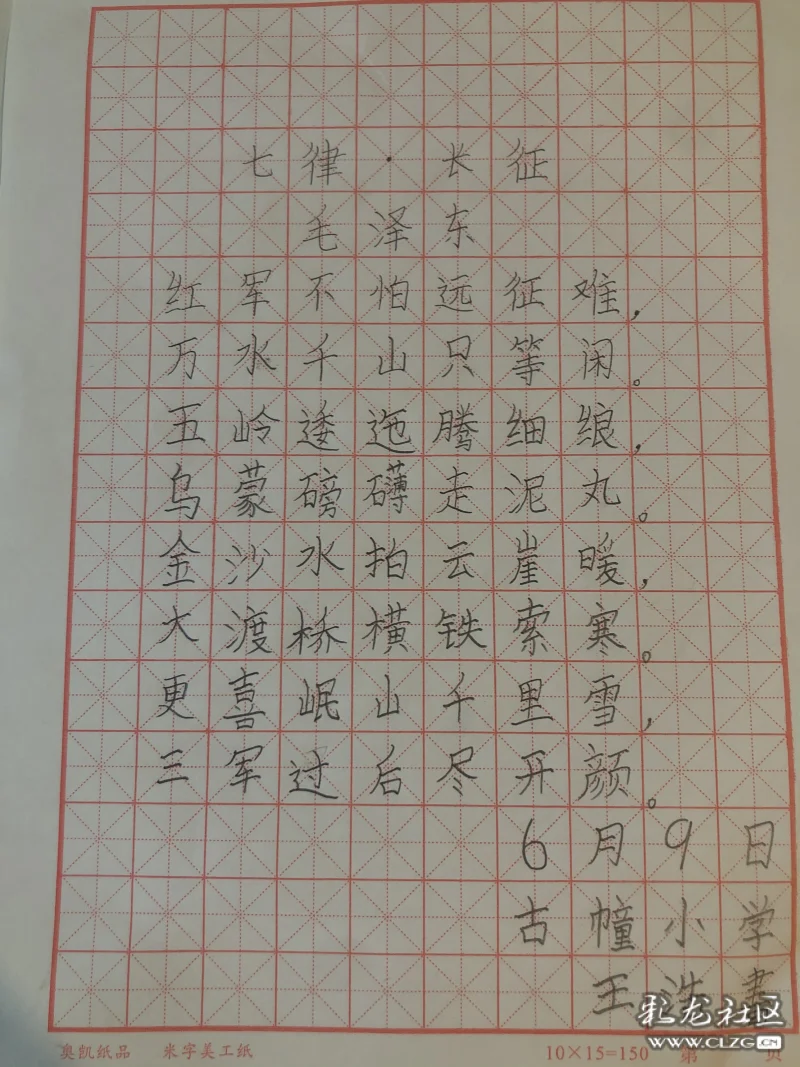 七律·长征
毛泽东
红军不怕远征难,
万水千山只等闲。
五岭逶迤腾细浪,
乌蒙磅礴走泥丸。
金沙水拍云崖暖,
大渡桥横铁索寒。
更喜岷山千里雪,
三军过后尽开颜。
6月9日
古幢小学
王浩書
彩龙社区
WWW.CLZG.CN
奥凯纸品 米字美工纸 10×15=150 第 页